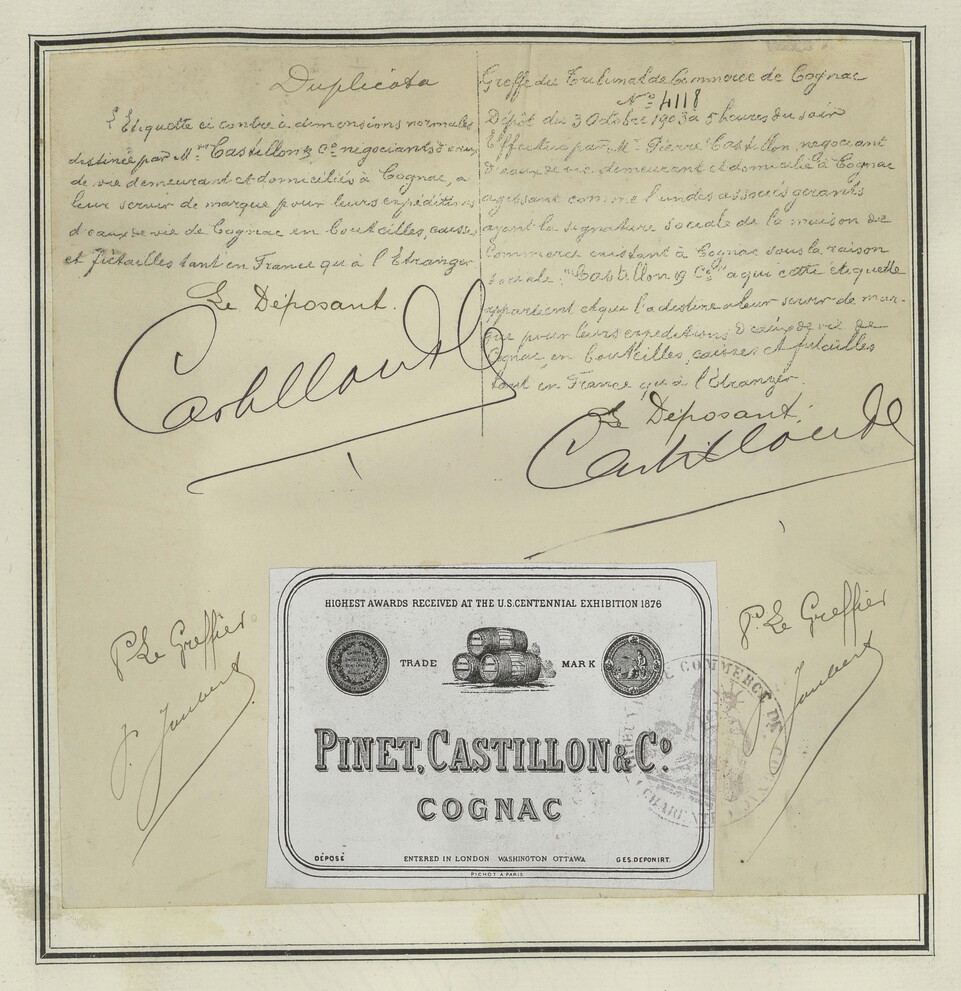 Duplicata
L'Etiquette ci contre à dimensions normales
destinée par M.rs Castillon & Co négociants d'eaux
de vie demeurant et domiciliés à Cognac, a
leur servir de marque pour leurs expéditions
d'eaux de vie de Cognac en bouteilles, caisses
et futailles tant en France qu'à l'Etranger
Le Déposant.
Castillon & Co
Greffe du Tribunal de Commerce de Cognac
No 4118
Dépôt du 3 Octobre 1903 à 5 heures du soir
Effectué par Mr Pierre Castillon, negociant
d'eaux de vie demeurant et domicilié à Cognac
agissant comme l'un des associés gerants
ayant la signature sociale de la maison de
Commerce existant à Cognac sous la raison
sociale "Castillon & Co" a qui cette étiquette
appartient et qui l'a destine a leur servir de mar-
que pour leurs expeditions d'eaux de vie de
Cognac en bouteilles, caisses et futailles
tant en France qu'à l'Etranger.
Le Déposant.
Castillon & Co
Pr Le Greffier
J. Jaubert
Pr Le Greffier
J. Jaubert
HIGHEST AWARDS RECEIVED AT THE U.S. CENTENNIAL EXHIBITION 1876
TRADE MARK
PINET, CASTILLON & Co.
COGNAC
DÉPOSÉ ENTERED IN LONDON WASHINGTON OTTAWA GES. DEPONIRT.
PICHOT A PARIS
COMMERCE DE